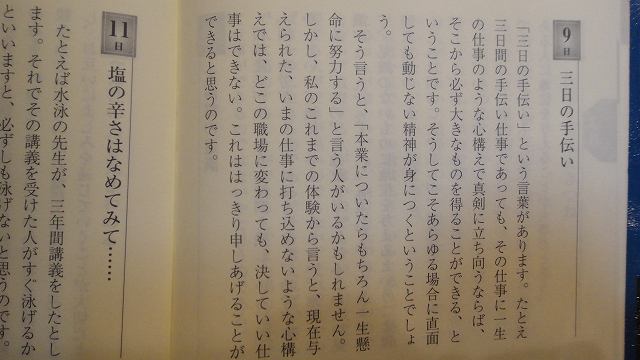 9日
三日の手伝い
「三日の手伝い」という言葉があります。たとえ
三日間の手伝い仕事であっても、その仕事に一生
の仕事のような心構えで真剣に立ち向うならば、
そこから必ず大きなものを得ることができる、と
いうことです。そうしてこそあらゆる場合に直面
しても動じない精神が身につくということでしょ
う。
そう言うと、「本業についたらもちろん一生懸
命に努力する」と言う人がいるかもしれません。
しかし、私のこれまでの体験から言うと、現在与
えられた、いまの仕事に打ち込めないような心構
えでは、どこの職場に変わっても、決していい仕
事はできない。これははっきり申しあげることが
できると思うのです。
11日
塩の辛さはなめてみて……
たとえば水泳の先生が、三年間講義をしたとし
ます。それでその講義を受けた人がすぐ泳げるか
といいますと、必ずしも泳げないと思うのです。